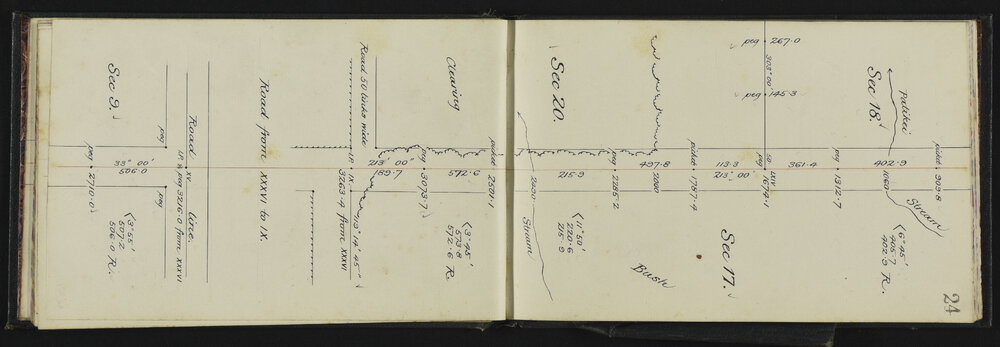 24
peg 267.0
303° 00'
peg 145.3
Sec 18.
Patikei
picket 909.8
1069
Stream
402.9
6° 45'
405.7
402.9 R.
peg 1312.7
361.4
peg 1674.1
I.P. XXIV
213° 00'
113.3
Sec 17.
picket 1787.4
2000
497.8
Bush
peg 2285.2
Sec 20.
215.9
11° 50'
220.6
215.9
2400
Stream
picket 2501.1
Clearing
572.6
3° 45'
573.8
572.6 R.
peg 3073.7
Road 50 links wide
213° 00'
189.7
113° 14' 45"
I.P. IX
3263.4 from XXXVI
Road from XXXVI to IX.
Road line.
I.P. XV.
& peg 3216.0 from XXXVI
peg
peg
Sec 9.
33° 00'
506.0
peg 2710.0
3° 55'
507.2
506.0 R.